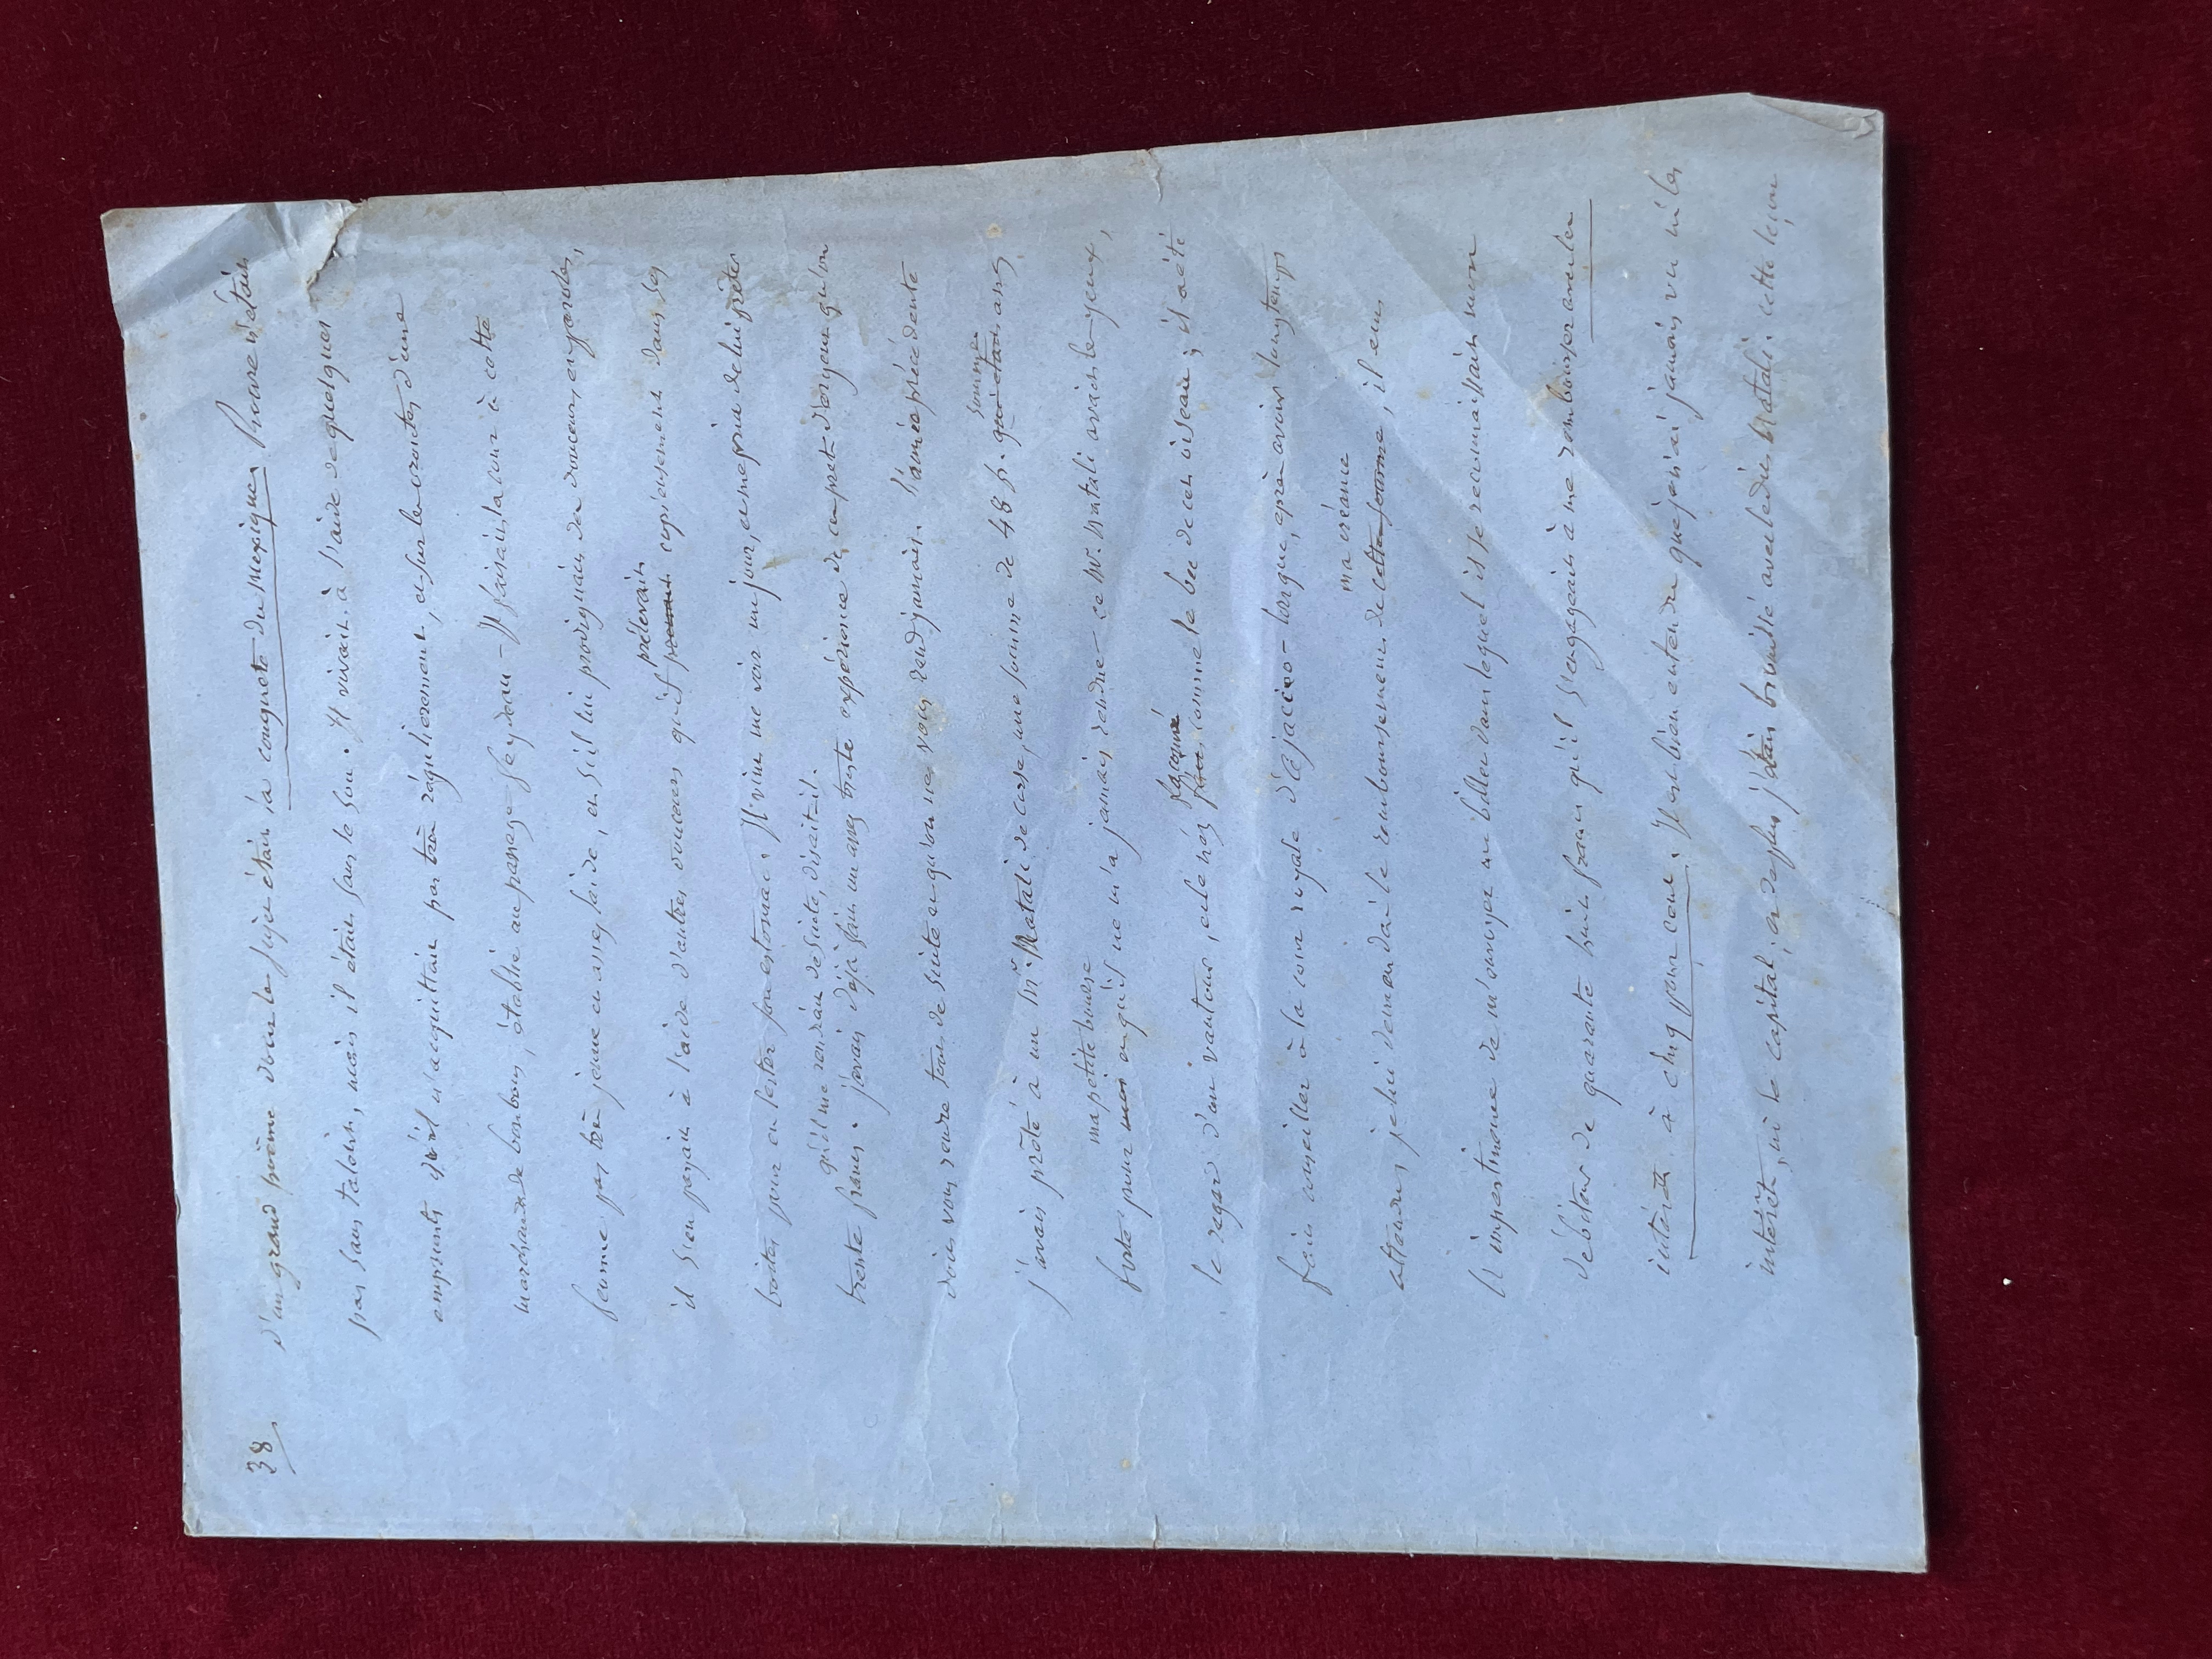 38
d'un grand poème dont le sujet était la conquête du Mexique. Provre n'était
pas sans talent, mais il était sans le sou. Il vivait à l'aide de quelques
emprunts dont il s'acquittait pas très régulièrement, et sur les ventes d'une
marchande de bonbons, établie au passage Feydeau - Il faisait la cour à cette
femme pas très jeune et assez laide, et s'il lui prodiguait des douceurs en paroles,
prélevait
il s'en payait à l'aide d'autres douceurs qu'il expressement dans ses
boites pour en lester son estomac. Il vint me voir un jour, et me pria de lui prêter
qu'il me rendrait de suite, disait-il.
trente francs. j'avais déjà fait un assez triste expérience de ce pret d'argent qu'on
doit vous rendre tout de suite et qu'on ne vous rend jamais. l'année précédente
somme
j'avais prêté à un Mr. Natali de Corse, une somme de 48 f. qui était assez
ma petite bourse
forte pour mes et qu'il ne m'a jamais rendue - ce Mr. Natali avait les yeux,
façonné
le regard d'un vautour, et le nez fait comme le bec de cet oiseau; il a été
fait conseiller à la cour royale d'ajaccio - lorsque, après avoir longtemps
ma créance
attendu, je lui demandai le remboursement de cette somme, il eut
l'impertinence de m'envoyer un billet dans lequel il se reconnaissait mon
débiteur de quarante huit francs qu'il s'engageait à me rembourser avec les
intérêts à cinq pour cent. Il est bien entendu que je n'ai jamais vu ni les
intérêts, ni le capital; et de plus j'étais brouillé avec le dit Natali. cette leçon